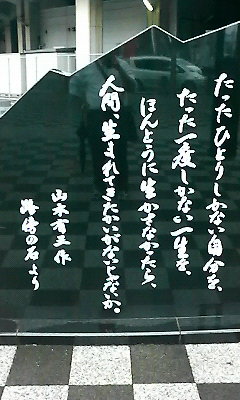 たったひとりしかない自分を、
たった一度しかない一生を、
ほんとうに生かさなかったら、
人間、生まれてきたかいがないじゃないか。
山本有三作
路傍の石より